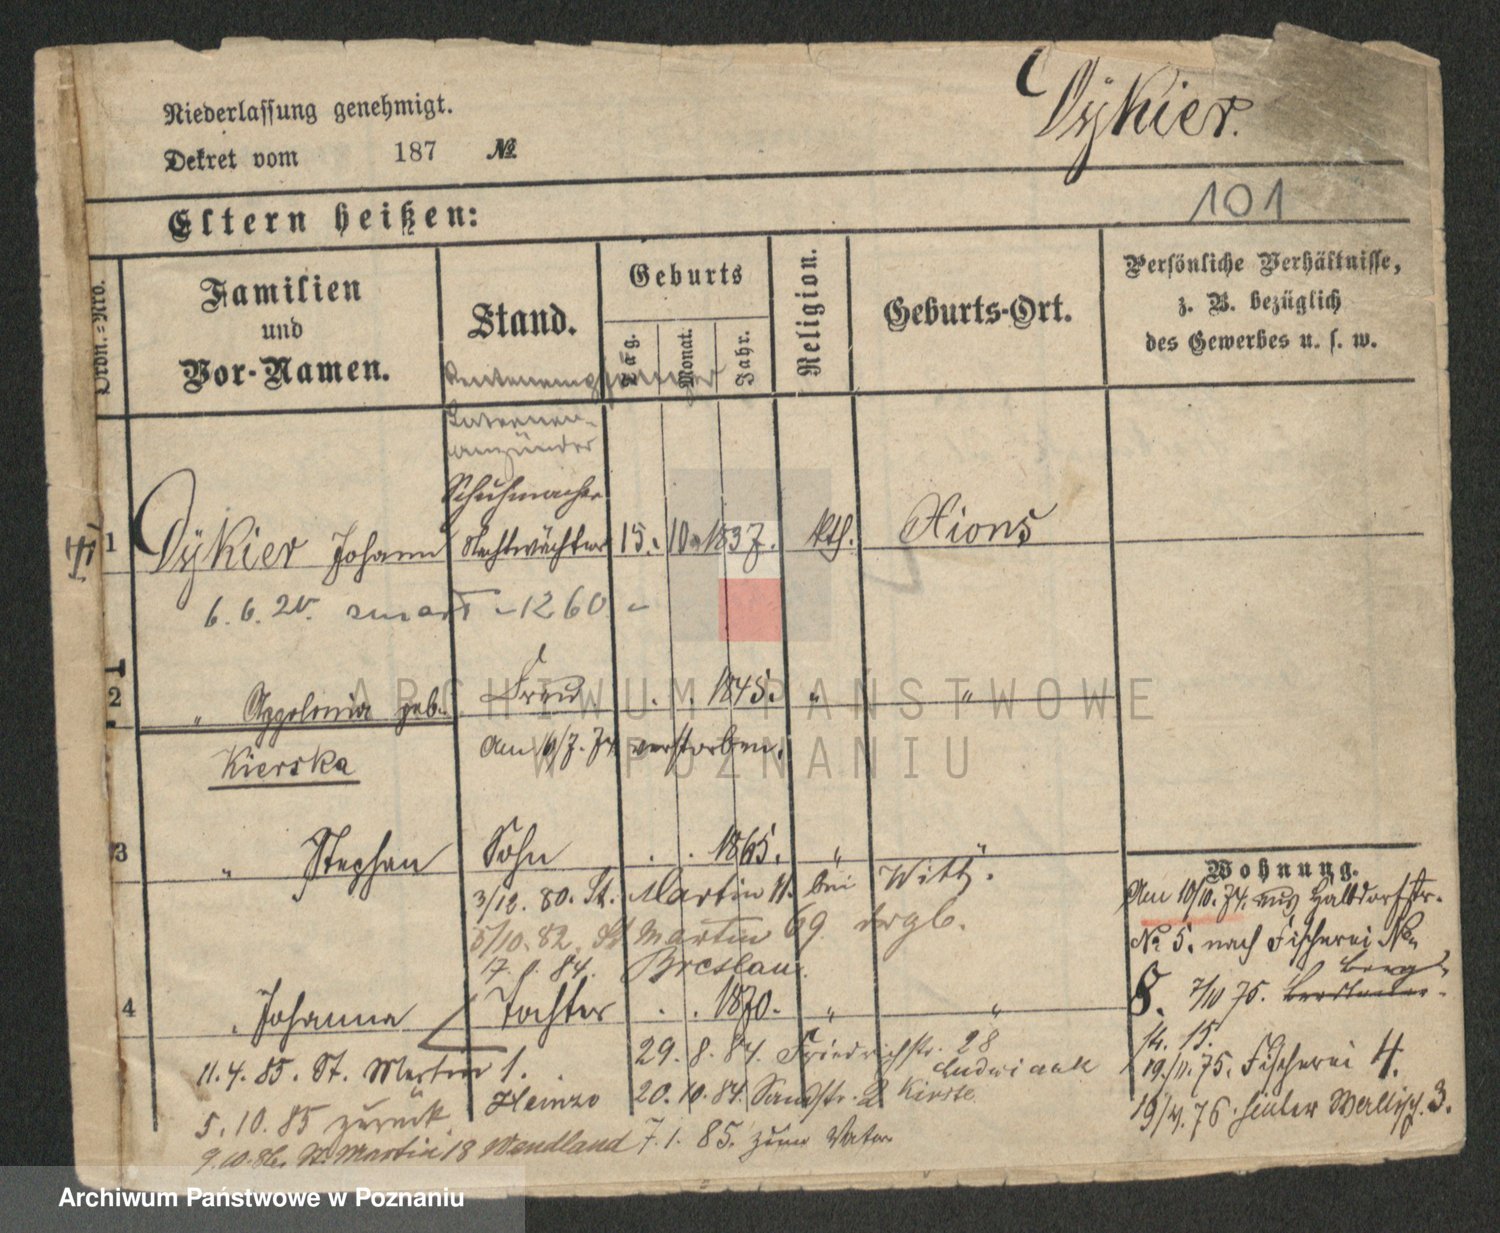 Niederlassung genehmigt.
Dekret vom 187 №
Dykier.
101
Eltern heißen:
Ordn.=Nro.
Familien und Vor-Namen.
Stand.
Geburts
Tag.
Monat.
Jahr.
Religion.
Geburts-Ort.
Persönliche Verhältnisse,
z. B. bezüglich
des Gewerbes u. s. w.
Laternen-
anzünder
Schuhmacher
1 Dykier Johann Nachtwächter 15. 10. 1837. kth. Xions
6. 6. 20. zmarł - 1260 -
2 " Appolonia geb. Frau . . 1845. " "
Kierska am 16/7. 74 verstorben.
3 " Stephan Sohn . . 1865. " "
3/12. 80. St. Martin 11. bei Witt.
5/10. 82. St Martin 69. drgl.
17. 84. Breslau.
4 " Johanna Tochter . . 1870. " "
11. 4. 85. St. Martin 1.
29. 8. 84. Friedrichstr. 28
Ludwiak
Heinze 20. 10. 84. Sandstr. 2 Kirste
5. 10. 85 zurück.
7. 1. 85. zum Vater
9. 10. 86. St. Martin 18 Wendland
Wohnung.
Am 10/10. 74. aus Halbdorfstr.
No 5. nach Fischerei No
8. 7/10 75. berg
St. 15.
19/11. 75. Fischerei 4.
19/4. 76. Wallisch. 3.
ARCHIWUM PAŃSTWOWE
W POZNANIU
Archiwum Państwowe w Poznaniu